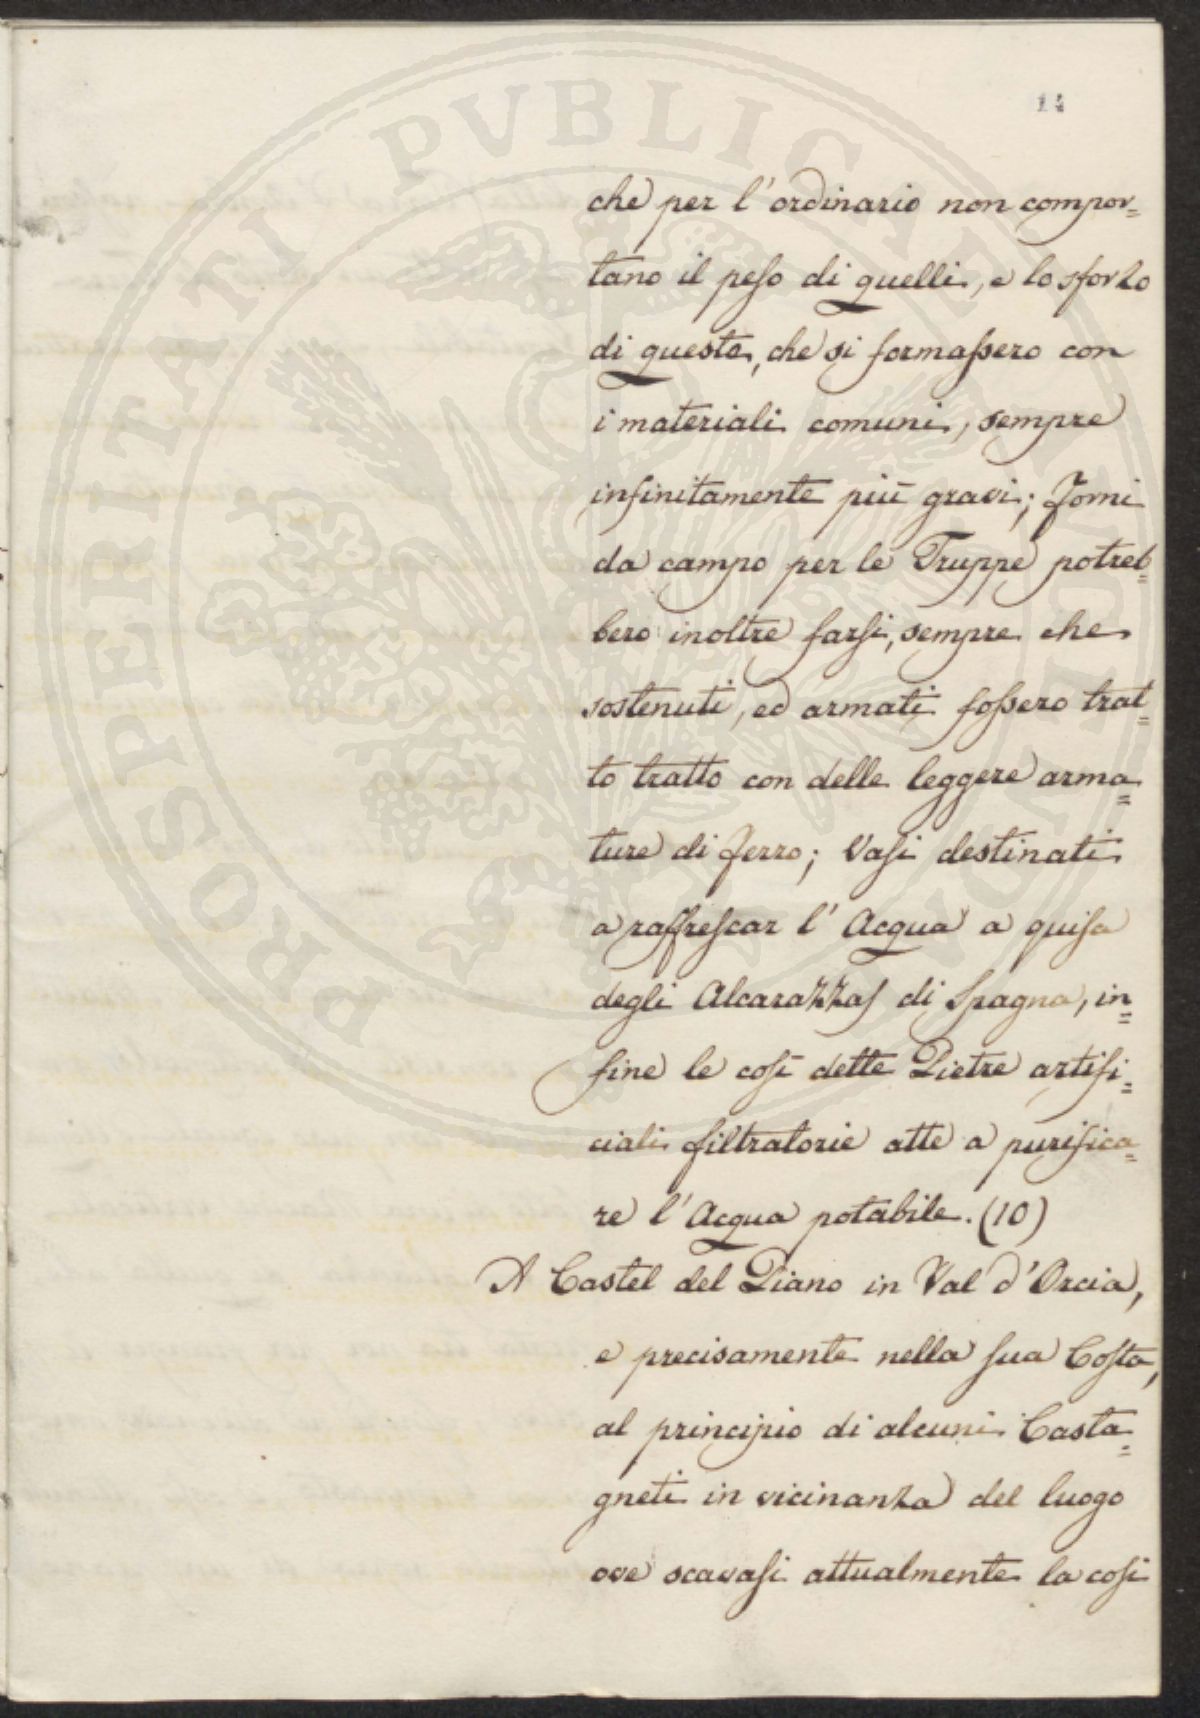 14
che per l'ordinario non compor=
tano il peso di quelli, e lo sforzo
di queste, che si formassero con
i materiali comuni, sempre
infinitamente più gravi; Forni
da campo per le Truppe potreb=
bero inoltre farsi, sempre che
sostenuti, ed armati fossero trat=
to tratto con delle leggere arma=
ture di ferro; Vasi destinati
a raffrescar l'Acqua a guisa
degli Alcarazzas di Spagna, in=
fine le così dette Pietre artifi=
ciali filtratorie atte a purifica=
re l'Acqua potabile. (10)
A Castel del Piano in Val d'Orcia,
e precisamente nella sua Costa,
al principio di alcuni Casta=
gneti in vicinanza del luogo
ove scavasi attualmente la così
PROSPERITATI PVBLICAE